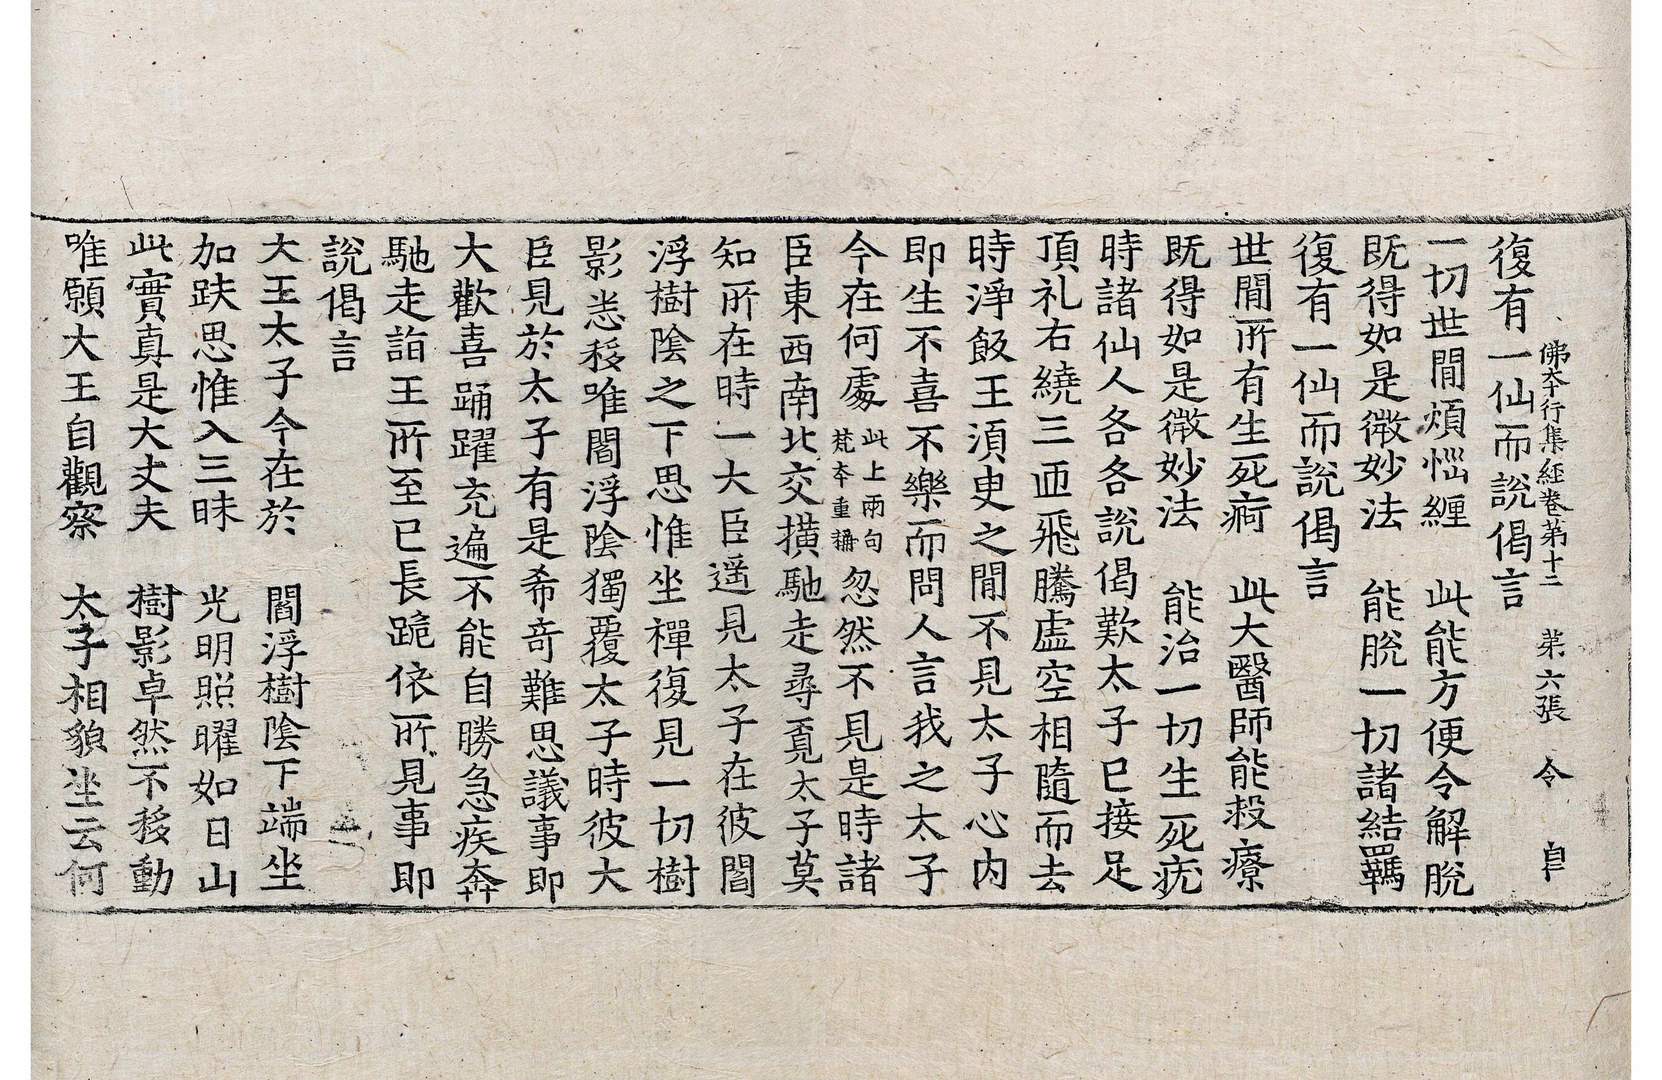 佛本行集經卷第十二 第六張 令 自
復有一仙而說偈言
一切世間煩惱纏 此能方便令解脫
既得如是微妙法 能脫一切諸結羈
復有一仙而說偈言
世間所有生死痾 此大醫師能救療
既得如是微妙法 能治一切生死疣
時諸仙人各各說偈歎太子已接足
頂礼右繞三匝飛騰虛空相隨而去
時淨飯王湏臾之間不見太子心內
即生不喜不樂而問人言我之太子
今在何處此上兩句梵本重稱忽然不見是時諸
臣東西南北交撗馳走尋覓太子莫
知所在時一大臣遥見太子在彼閻
浮樹陰之下思惟坐禪復見一切樹
影悉移唯閻浮陰獨覆太子時彼大
臣見於太子有是希奇難思議事即
大歡喜踊躍充遍不能自勝急疾奔
馳走詣王所至已長跪依所見事即
說偈言
大王太子今在於 閻浮樹陰下端坐
加趺思惟入三昧 光明照曜如日山
此實真是大丈夫 樹影卓然不移動
唯願大王自觀察 太子相貌坐云何